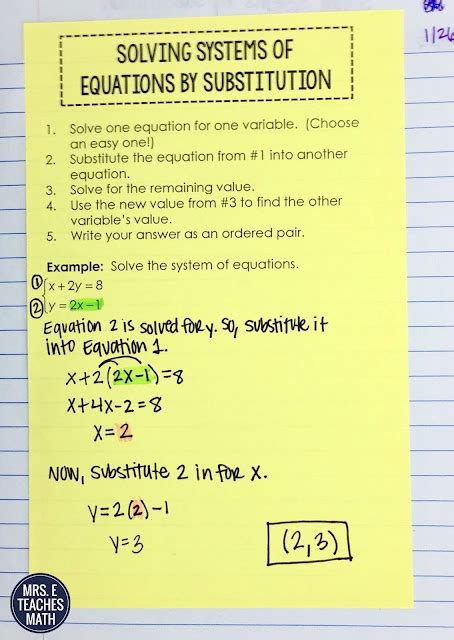 1/26
SOLVING SYSTEMS OF
EQUATIONS BY SUBSTITUTION
1. Solve one equation for one variable. (Choose
an easy one!)
2. Substitute the equation from #1 into another
equation.
3. Solve for the remaining value.
4. Use the new value from #3 to find the other
variable's value.
5. Write your answer as an ordered pair.
Example: Solve the system of equations.
① x + 2y = 8
② y = 2x − 1
Equation 2 is solved for y. So, substitute it
into Equation 1.
x+2(2x−1)=8
x+4x−2=8
x=2
Now, substitute 2 in for x.
y=2(2)−1
y=3
(2,3)
MRS. E
TEACHES
MATH